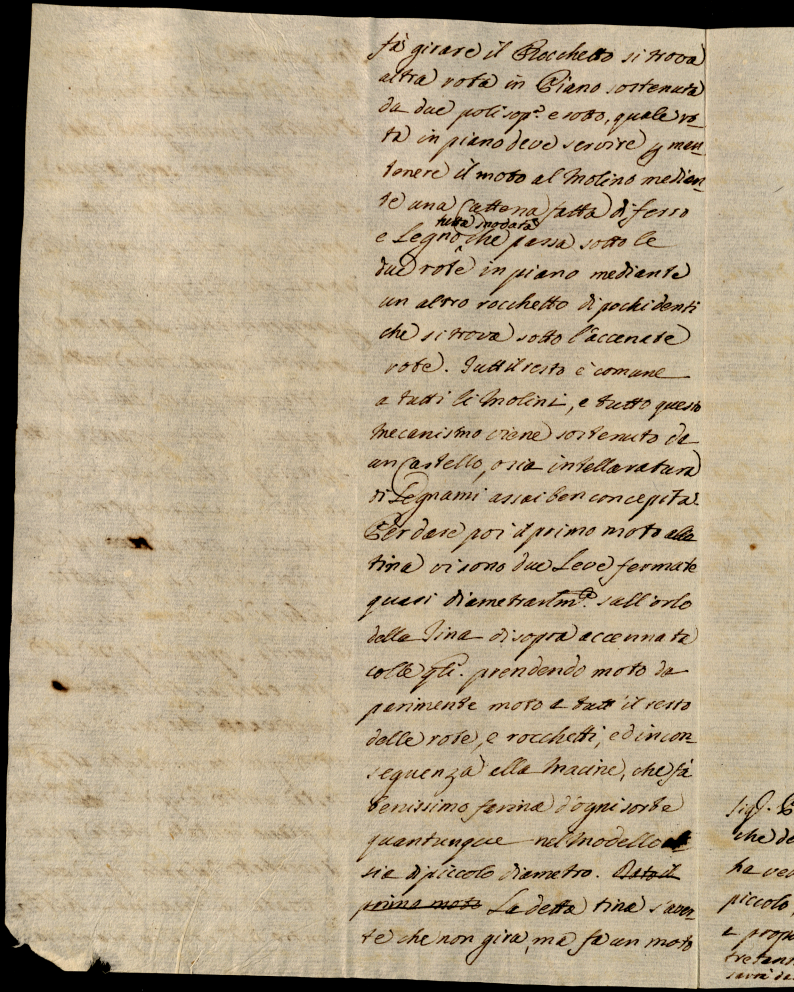 fà girare il Rocchetto si trova
altra rota in Piano sostenuta
da due poli sop.ª e sotto, quale ro-
ta in piano deve servire p man-
tenere il moto al Molino median-
te una Cattena fatta di ferro
tutta snodata
e Legno che passa sotto le
due rote in piano mediante
un altro rocchetto di pochi denti
che si trova sotto l'accenate
rote. Tutt il resto è comune
a tutti li Molini, e tutto questo
Mecanismo viene sostenuto da
un Castello, osia intellaratura
di Legnami assai ben concepita.
Per dare poi il primo moto alla
tina vi sono due Leve fermate
quasi diametralm.e sull'orlo
della Tina di sopra accennata
colle qli. prendendo moto da
parimente moto a tutt'il resto
delle rote, e rocchetti, ed in con-
seguenza alla Macine, che fà
benissimo farina d'ogni sorte
quantunque nel Modello
sia di piccolo diametro. Dato il
primo moto La detta tina s'aver-
te che non gira, ma fa un moto
Sigr.
che de
ha ved
piccolo,
a propo
tretan